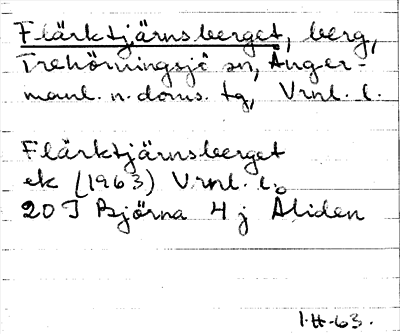 Flärktjärnsberget, berg,
Trehörningsjö sn, Ånger-
manl. n. doms. tg, Vrnl. l.
Flärktjärnsberget
ek (1963) Vrnl. l.
20 I Björna 4 j Åliden